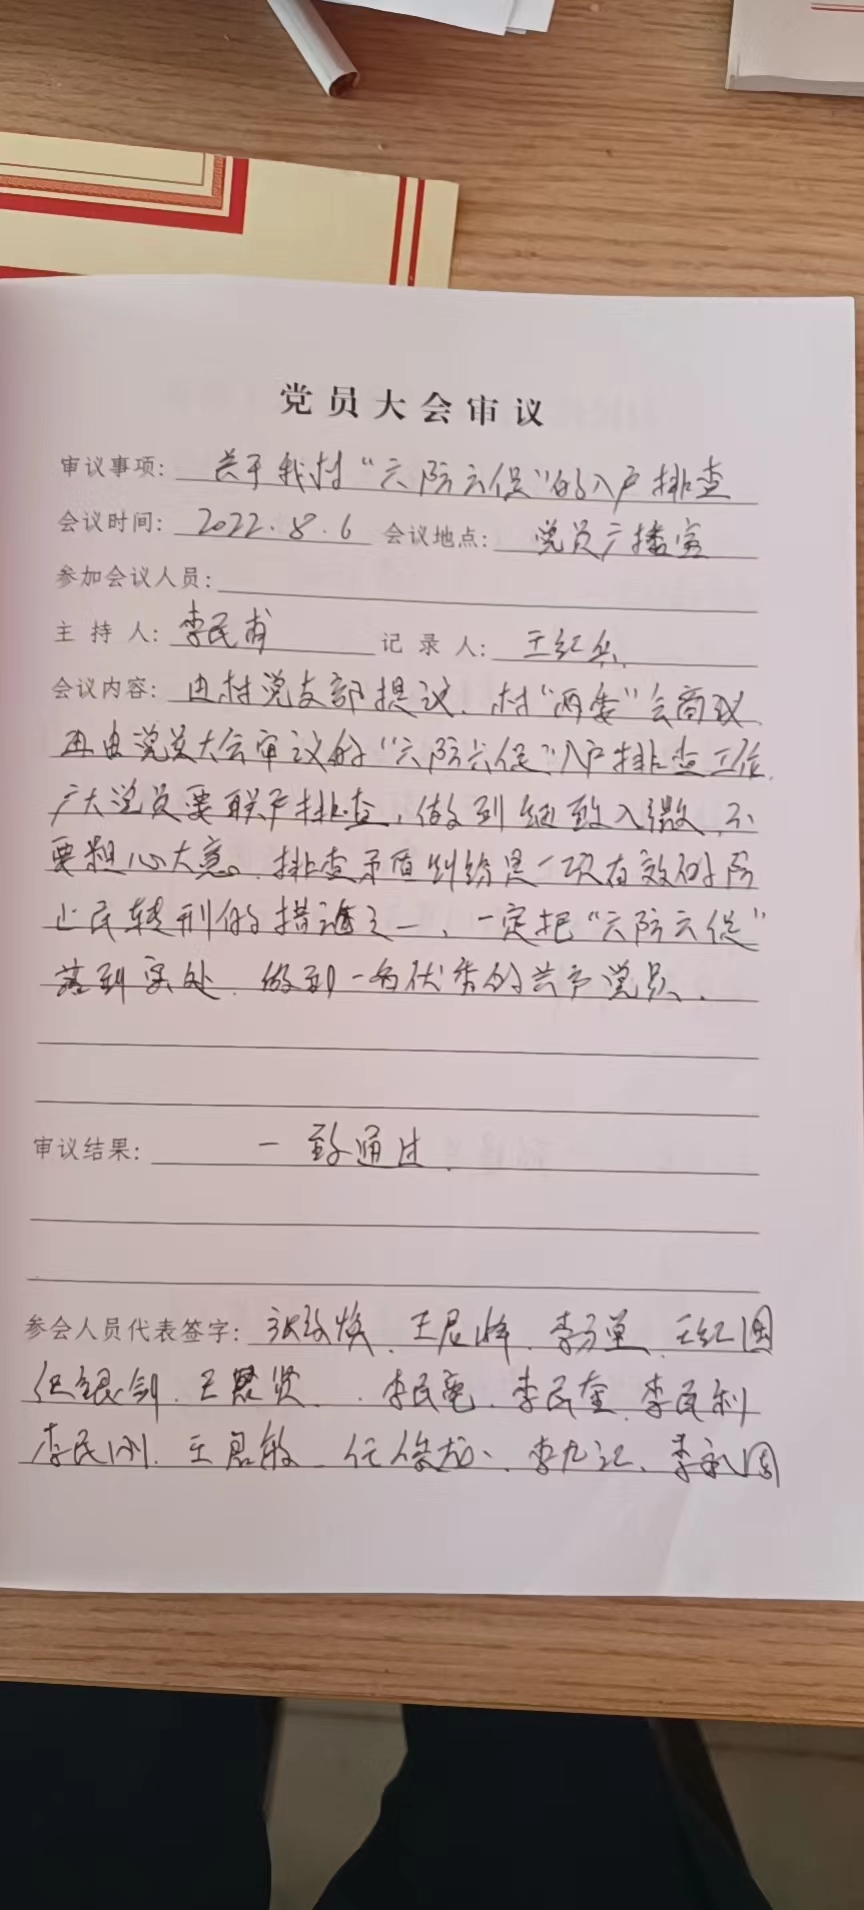 党员大会审议
审议事项: 关于我村“六防六促”的入户排查
会议时间: 2022.8.6 会议地点: 党员广播室
参加会议人员:
主持人: 李民甫 记录人: 王红兵
会议内容: 由村党支部提议、村“两委”会商议、
再由党员大会审议的“六防六促”入户排查工作,
广大党员要联户排查,做到细致入微,不
要粗心大意。排查矛盾纠纷是一项有效的防
止民转刑的措施之一、一定把“六防六促”
落到实处、做到一名优秀的共产党员.
审议结果: 一致通过.
参会人员代表签字: 王红国
王 贤、李民亮、李民奎、李民利
李民刚、王君敏、任俊龙、李九江、李永国